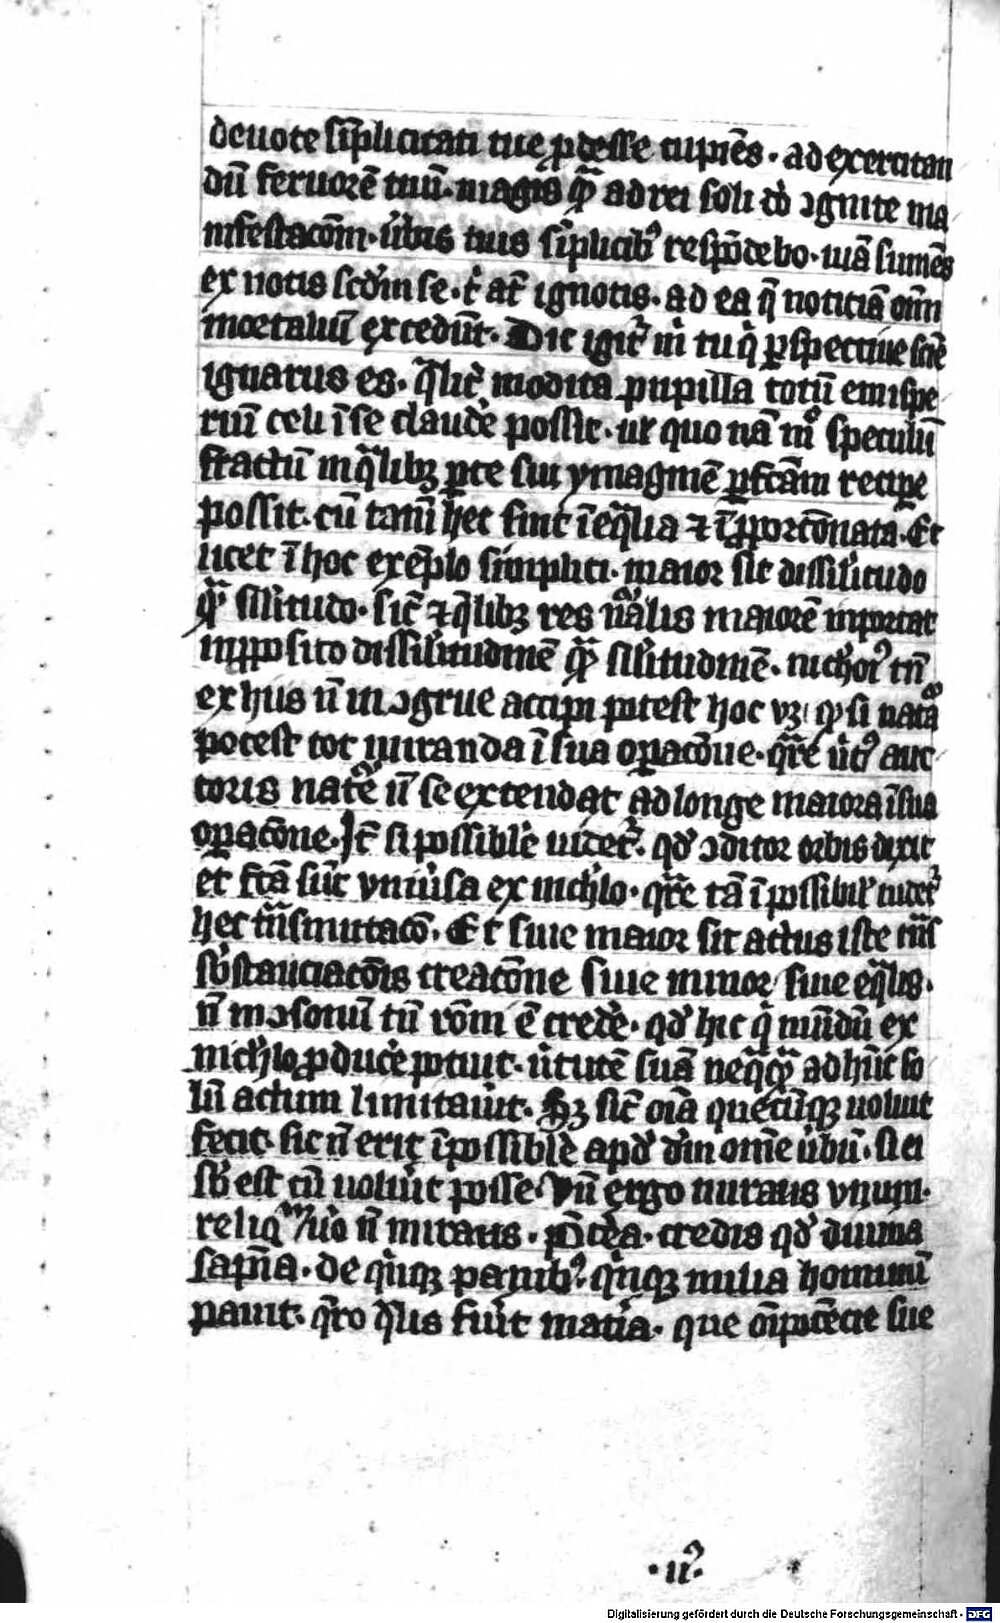 deuote sīplicitati tue ꝓdesse cupiēs · ad exercitan
dū feruorē tuū · magis qᷓ ad rei soli deo ꝯgnite ma
nifestacōm · ūbis tuis sīplicibꝰ respōdebo · viā sumēs
ex notis scdm se · ad ea q̄ noticiā om̄
mortaliū excedūt · Dic igit̄ m̄ tu q̇ ꝑspectiue scīe
ignarus es · qᷓlit̄ modica pupilla totū emispe
riū celi ī se claudē possit · vꝉ quo nā mᵒ speculū
fractū in qᷓlibꝫ ꝑte sui ymaginē ꝑfcām recipe
possit · cū tamē hec sint īeqᷓlia ⁊ īꝓporcōnata · Et
licet ī hoc exēplo simplici · maior sit dissilitudo
qᷓ silitudo · sic̄ ⁊ qᷓlibꝫ res nᷓalis maiorē inportat
in ꝓposito dissilitudinē qᷓ silitudinē · nichꝰ tn̄
ex hiis n̄ in ꝯgrue accipi potest hoc vꝫ · ꝙ si natᷓa
potest tot miranda ī sua oꝑacōne · qᷓre v̄tꝰ auc
toris natᷓe n̄ se extendat ad longe maiora ī sua
oꝑacōne · Jt̄ si possibile videt̄ · qd̄ ꝯditor orbis dixit
et fcā sūt vniūsa ex nichilo · qᷓre tā īpossibil̄ videt̄
hec tᷓnsmutacō · Et siue maior sit actus iste tᷓns
sb̄stanciacōnis creacōne siue minor siue eqᷓlis ·
n̄ in ꝯsonū tn̄ rōni ē credē · qd̄ hic q̇ mūdū ex
nichilo ꝓducē potuit · v̄tutē suā neqᷓqᷓ ad hūc so
lū actum limitauit · Sꝫ sic̄ oīa quecūqꝫ voluit
fecit · sic n̄ erit īpossibile apd̄ dm̄ omē v̄bū · si ei
sb̄ est cū voluit posse · Vn̄ ergo miraris vnum ·
reliqᷓ v̄o n̄ miraris · P̄tēa · credis qd̄ diuina
sapn̄a · de q̇nqꝫ panibꝰ · q̇nqꝫ milia hominū
pauit · qᷓro qᷓlis fuit matīa · que oīpotēcie sue
· ijꝰ ·
Digitalisierung gefördert durch die Deutsche Forschungsgemeinschaft - DFG